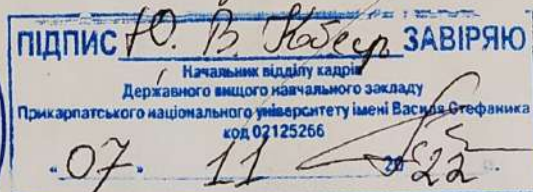 ПІДПИС Ю. В. ЗАВІРЯЮ
Начальник відділу кадрів
Державного вищого навчального закладу
Прикарпатського національного університету імені Василя Стефаника
код 02125266
"07" 11 2022